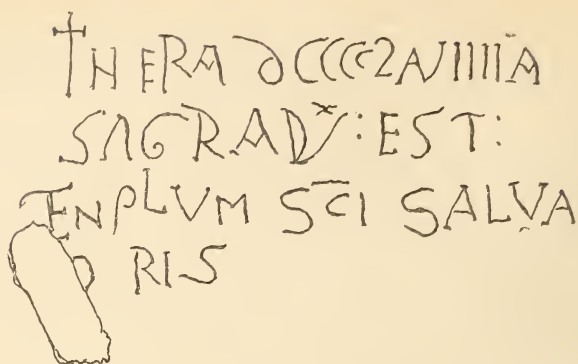 †N ERA DCCCC2AVIIIIA
SAGRADVˣ : EST :
TENPLVM SC̅I SALVA
O RIS